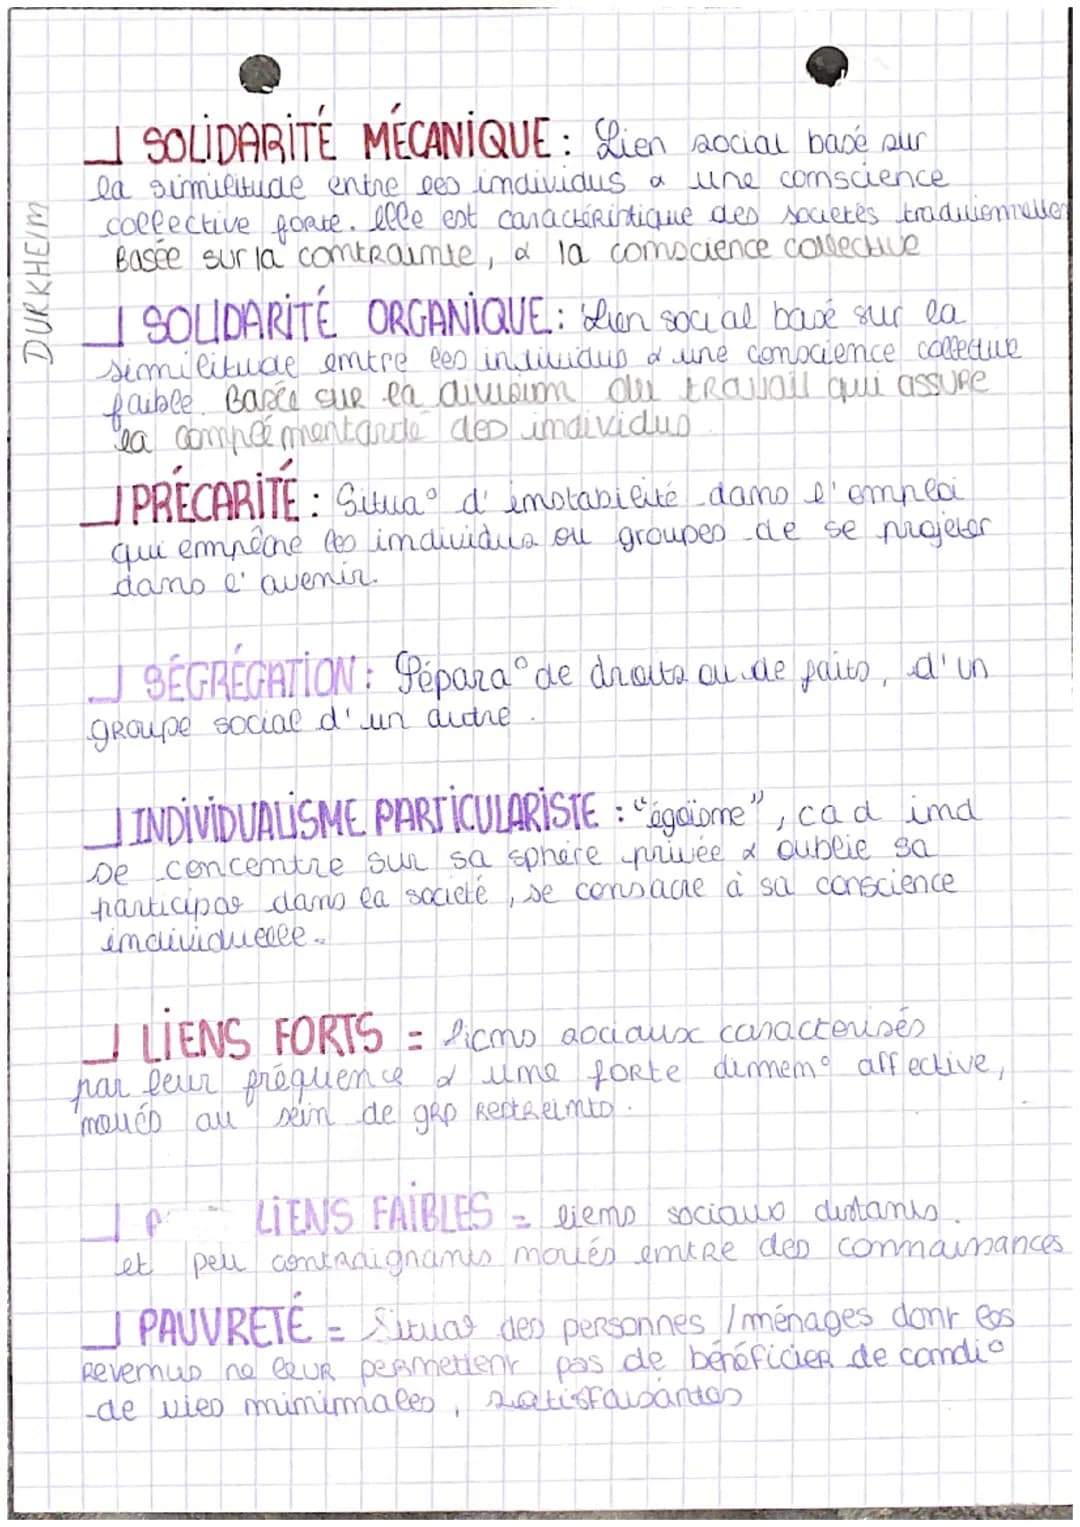 DURKHEIM
SOLIDARITÉ MÉCANIQUE : Lien social basé sur
la similitude entre les individus & une conscience
collective forte. Elle est caractéristique des sociétés traditionnelles
Basée sur la contrainte, & la conscience collective
SOLIDARITÉ ORGANIQUE : Lien social basé sur la
similitude entre les individus & une conscience collective
faible. Basée sur la division du travail qui assure
la complémentarité des individus
PRÉCARITÉ : Situa° d'instabilité dans l'emploi
qui empêche les individus ou groupes de se projeter
dans l'avenir.
SÉGRÉGATION : Sépara° de droits ou de faits, d'un
groupe social d'un autre.
INDIVIDUALISME PARTICULARISTE : "égoïsme", cad ind
se concentre sur sa sphère privée & oublie sa
participa° dans la société, se consacre à sa conscience
individuelle.
LIENS FORTS = liens sociaux caractérisés
par leur fréquence & une forte dimens° affective,
noués au sein de grp restreints.
LIENS FAIBLES = liens sociaux distants.
et peu contraignants noués entre des connaissances
PAUVRETÉ = Situa° des personnes / ménages dont les
revenus ne leur permettent pas de bénéficier de condi°
de vies minimales, satisfaisantes